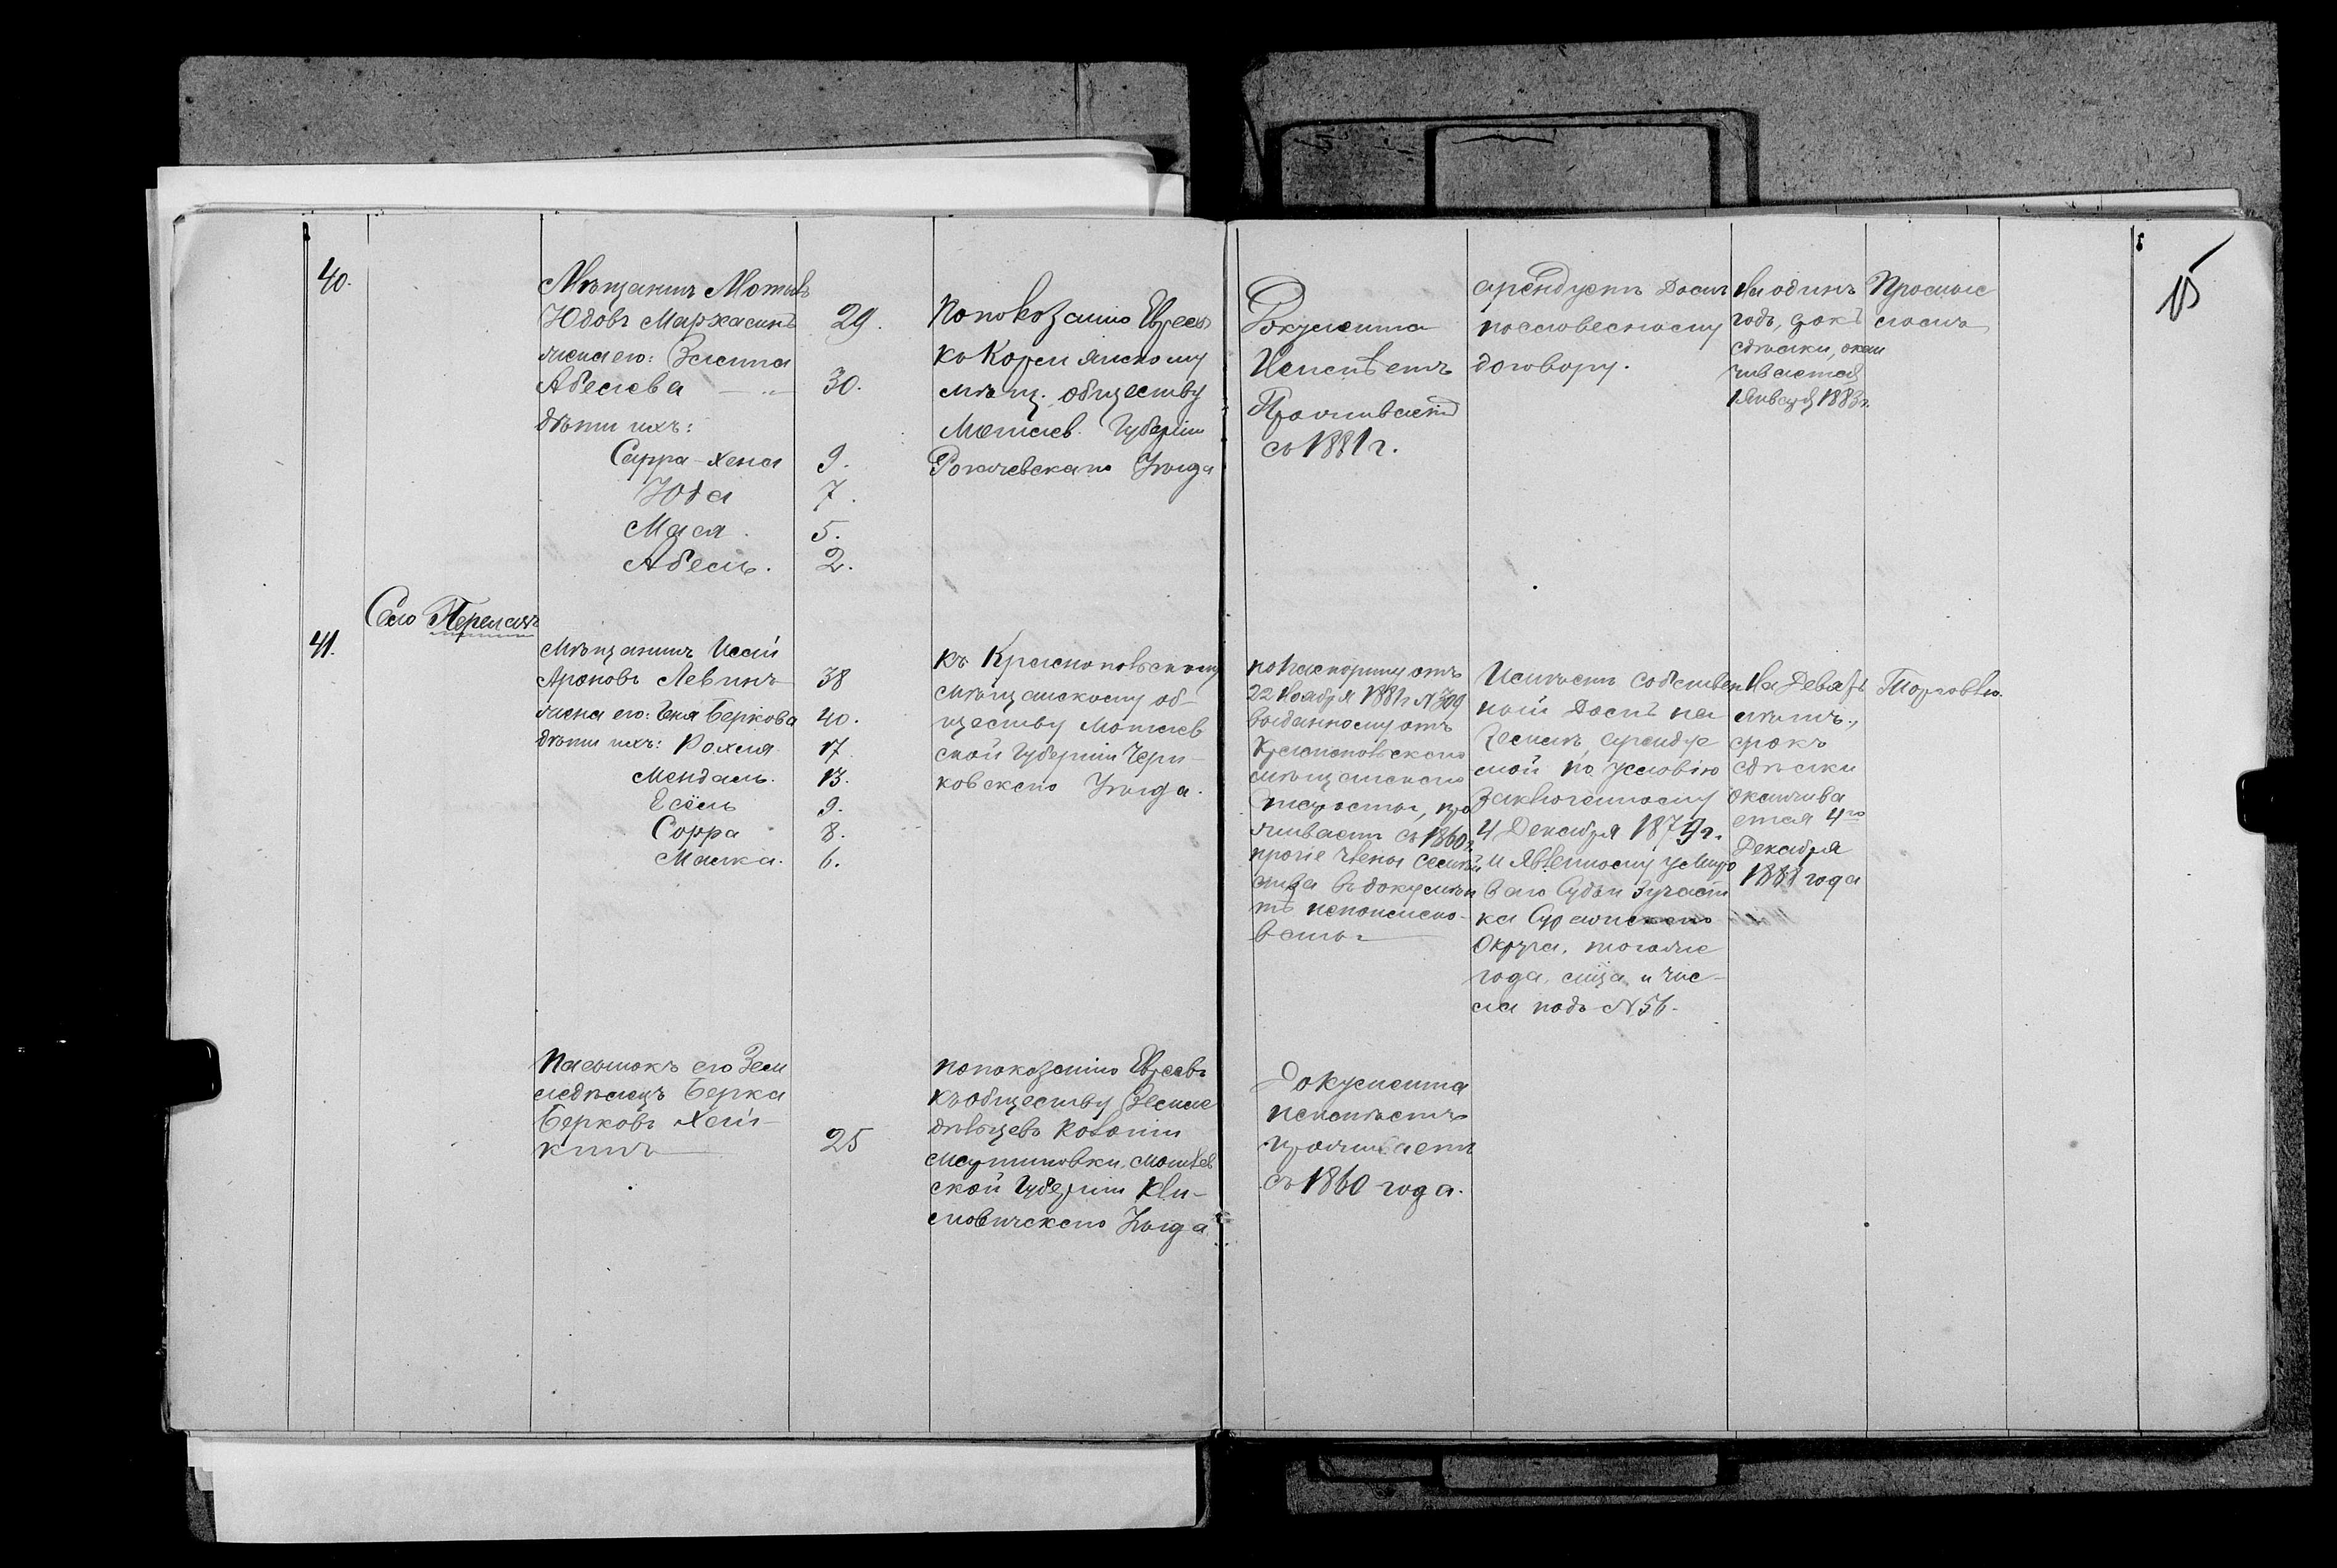 15
40.
Мѣщанинъ Мотель
Юдовъ Мархасинъ 29.
жена его: Злата
Абелева — „ — 30.
дѣти ихъ:
Сарра-Хена 9.
Юда 7.
Мася. 5.
Абель. 2.
По показанію Евреевъ
къ Кормянскому
мѣщ. обществу
Могилев. Губерніи
Рогачевскаго Уѣзда
Документа
Неимѣетъ
Проживаетъ
съ 1881 г.
арендуетъ Домъ
по словесному
договору.
На одинъ
годъ, срокъ
сдѣлки, окан
чивается
1 Января 1883 г.
Промыс
ломъ
Село
41.
Мѣщанинъ Исай
Ароновъ Левинъ 38
жена его: Геня Беркова 40.
дѣти ихъ: Рохля 17
Мендель. 13.
Есель 9.
Сорра 8.
Малка. 6.
Къ Краснопольскому
мѣщанскому об-
ществу Могилев
ской Губерніи Чери-
ковскаго Уѣзда.
по паспорту отъ
22 Ноября 1881 г № 309
выданному отъ
Краснопольскаго
мѣщанскаго
старосты, про
живаетъ съ 1860 г.
прочіе члены семей
ства въ докумен
тѣ непоимено-
ваны.
Имѣетъ собствен
ный домъ на
землѣ, арендуе
мой по условію
заключенному
4 Декабря 1879 г.
и явленному у Миро
ваго Судьи 3 участ
ка Суражскаго
Округа, тогоже
года, м-ца и чис-
ла подъ № 56.
На Девять
лѣтъ,
срокъ
сдѣлки
оканчива
ется 4го
Декабря
1888 года
Торговлею.
Пасынокъ его Зем
ледѣлецъ Берка
Берковъ Хай-
кинъ 25
по показанію Евреевъ
къ обществу Земле
дѣльцевъ Колоніи
Мартиновки, Могилев
ской Губерніи Кли-
мовичскаго Уѣзда
Документа
неимѣетъ
проживаетъ
съ 1860 года.